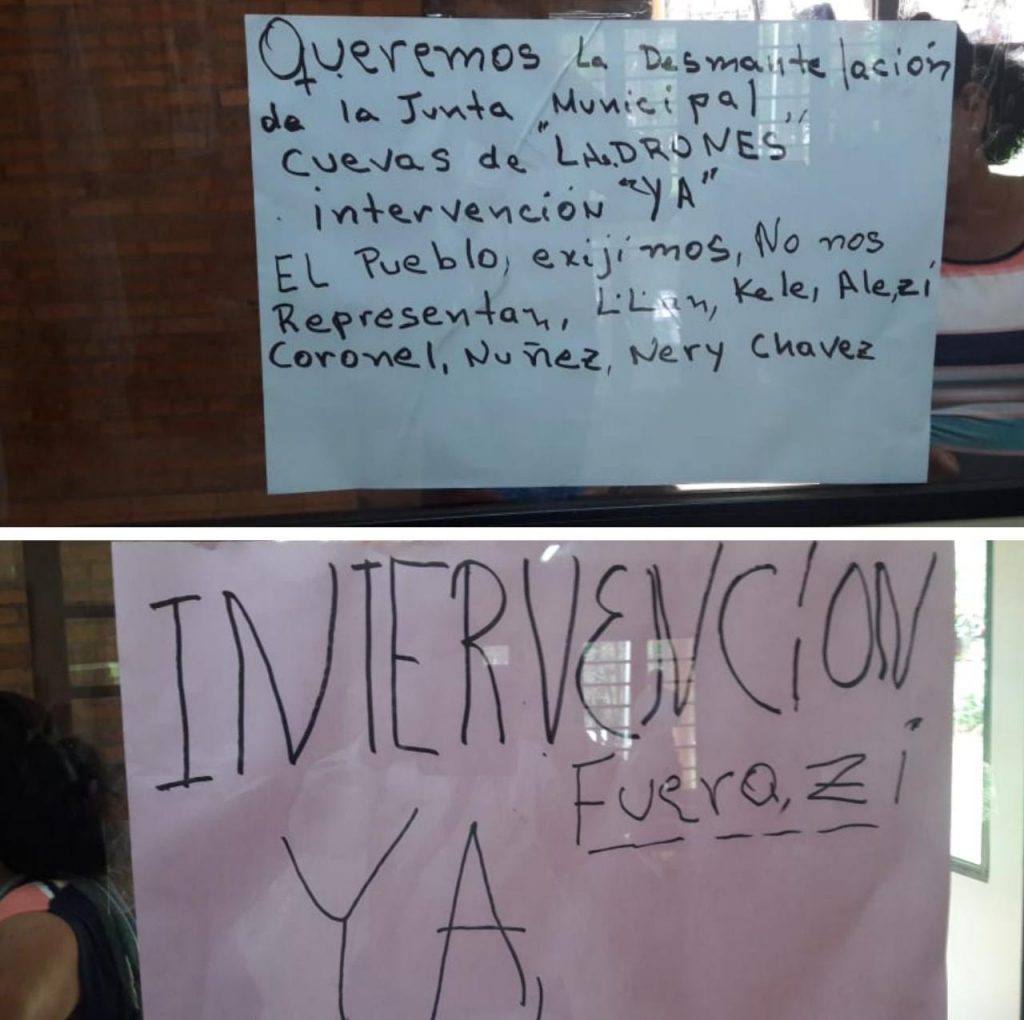 Queremos La Desmantelación
de la Junta Municipal,,
Cuevas de "LADRONES
intervención "YA"
EL Pueblo, exijimos, No nos
Representan, LiLian, Kele, Ale,zi
Coronel, Nuñez, Nery Chavez
INTERVENCÍON
Fuera, Zi
YA,